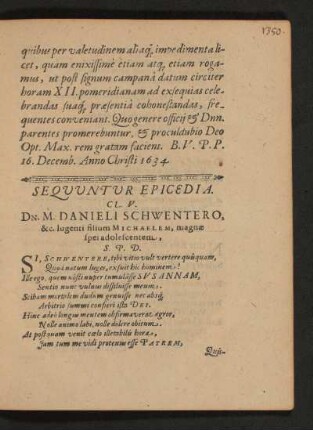 1350.
quibus per valetudinem aliaq́, impedimenta li-
cet, quam enixissimè etiam atq, etiam roga-
mus, ut post signum campanâ datum circiter
horam XII. pomeridianam ad exsequias cele-
brandas suaq́, præsentiâ cohonestandas, fre-
quentes conveniant. Quo genere officij & Dnn.
parentes promerebuntur, & proculdubio Deo
Opt. Max. rem gratam facient. B. V. P. P.
16. Decemb. Anno Christi 1634
SEQUUNTUR EPICEDIA.
CL. V.
DN. M. DANIELI SCHWENTERO,
&c. lugenti filium MICHAELEM, magnæ
spei adolescentem,
S. P. D.
SI, SCHWENTERE, tibi vitio vult vertere quisquam,
Quòd natum luges, exsuit hic hominem!
Ille ego, quem nôsti nuper tumulasse SUSANNAM,
Sentio nunc vulnus dissiluisse meum.
Scibam mortalem dudum genuisse nec absq,
Arbitrio summi confieri ista DEI.
Hinc adeò longus mentem obfirmaverat agror,
Nolle animo labi, nolle dolore obitum.
At postquam venit cælo illætabilis hora,
Jam tum me vidi protenus esse PATREM,